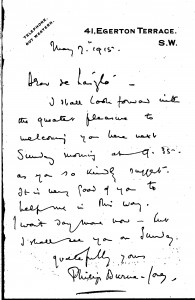 TELEPHONE
607 WESTERN.
41, EGERTON TERRACE.
S.W.
May 7. 1915.
Dear de László -
I shall look forward with
the greatest pleasure to
welcoming you here next
Sunday morning at 9.35-
as you so kindly suggest.
It is very good of you to
help me in this way.
I wont say more now - but
I shall see you on Sunday.
gratefully yours
Philip Burne-Jones